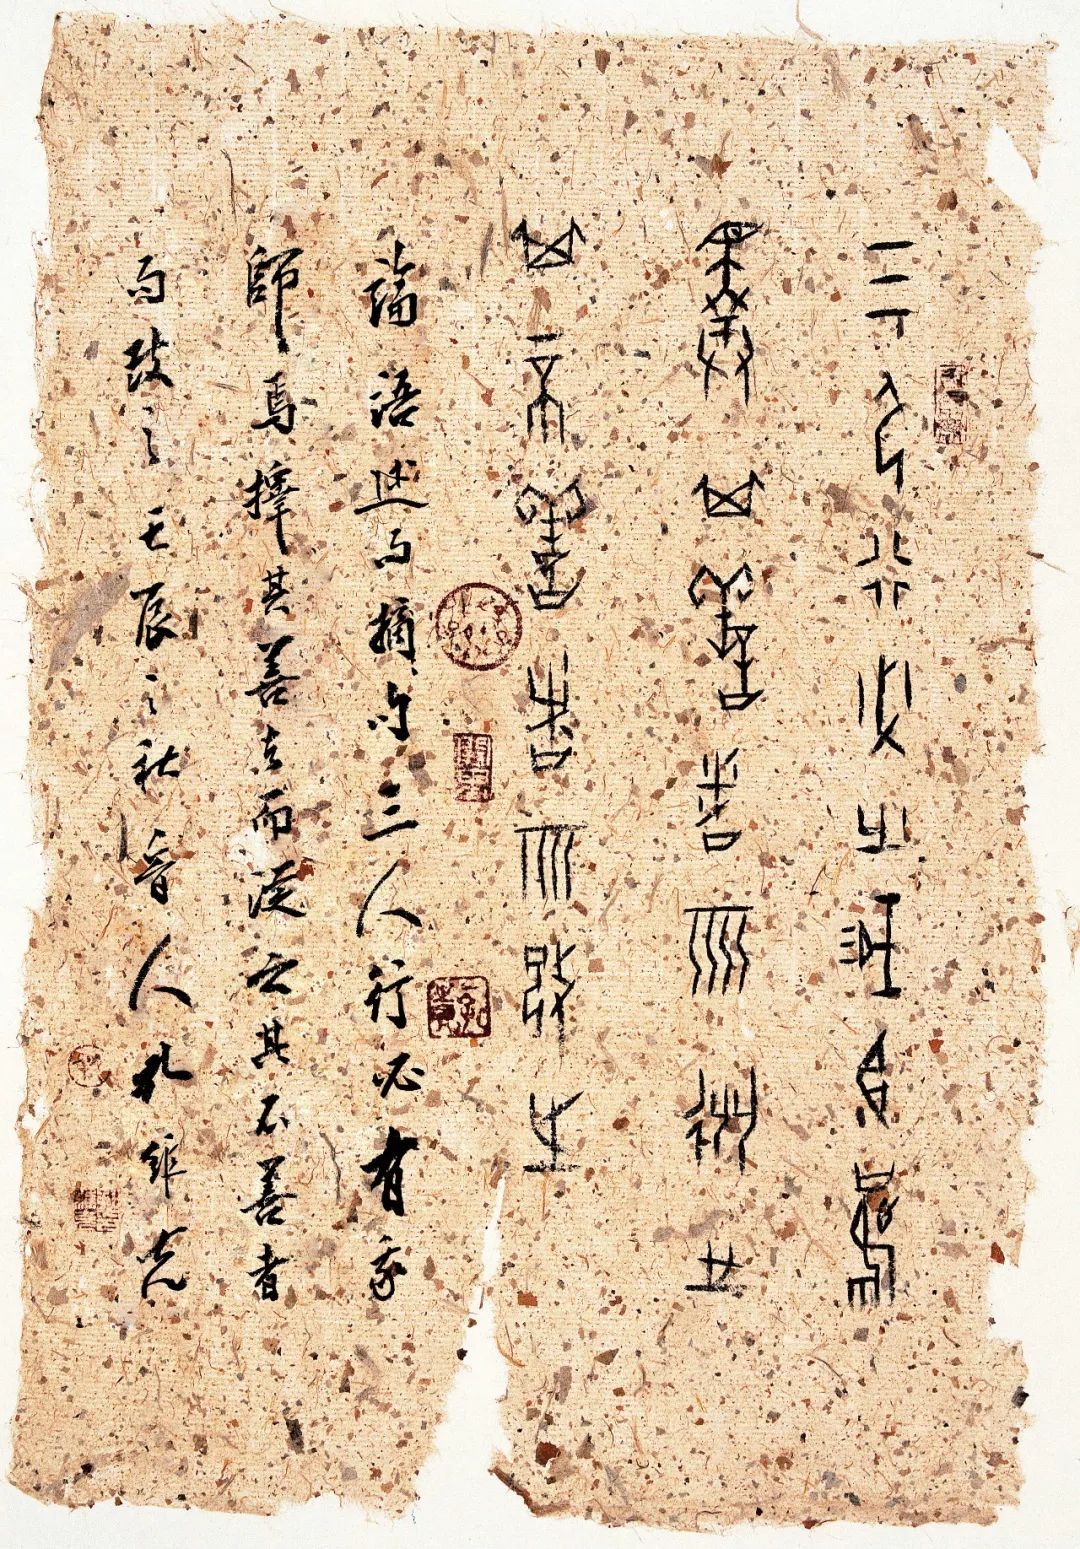 三人行必有我師焉
擇其善者而從之
其不善者而改之
論語述而摘句三人行必有我
師焉擇其善者而從之其不善者
而改之壬辰之秋魯人孔維克